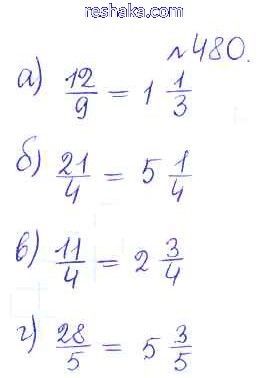 www.
reshaka.com
№480.
а) 12/9 = 1 1/3
б) 21/4 = 5 1/4
в) 11/4 = 2 3/4
г) 28/5 = 5 3/5